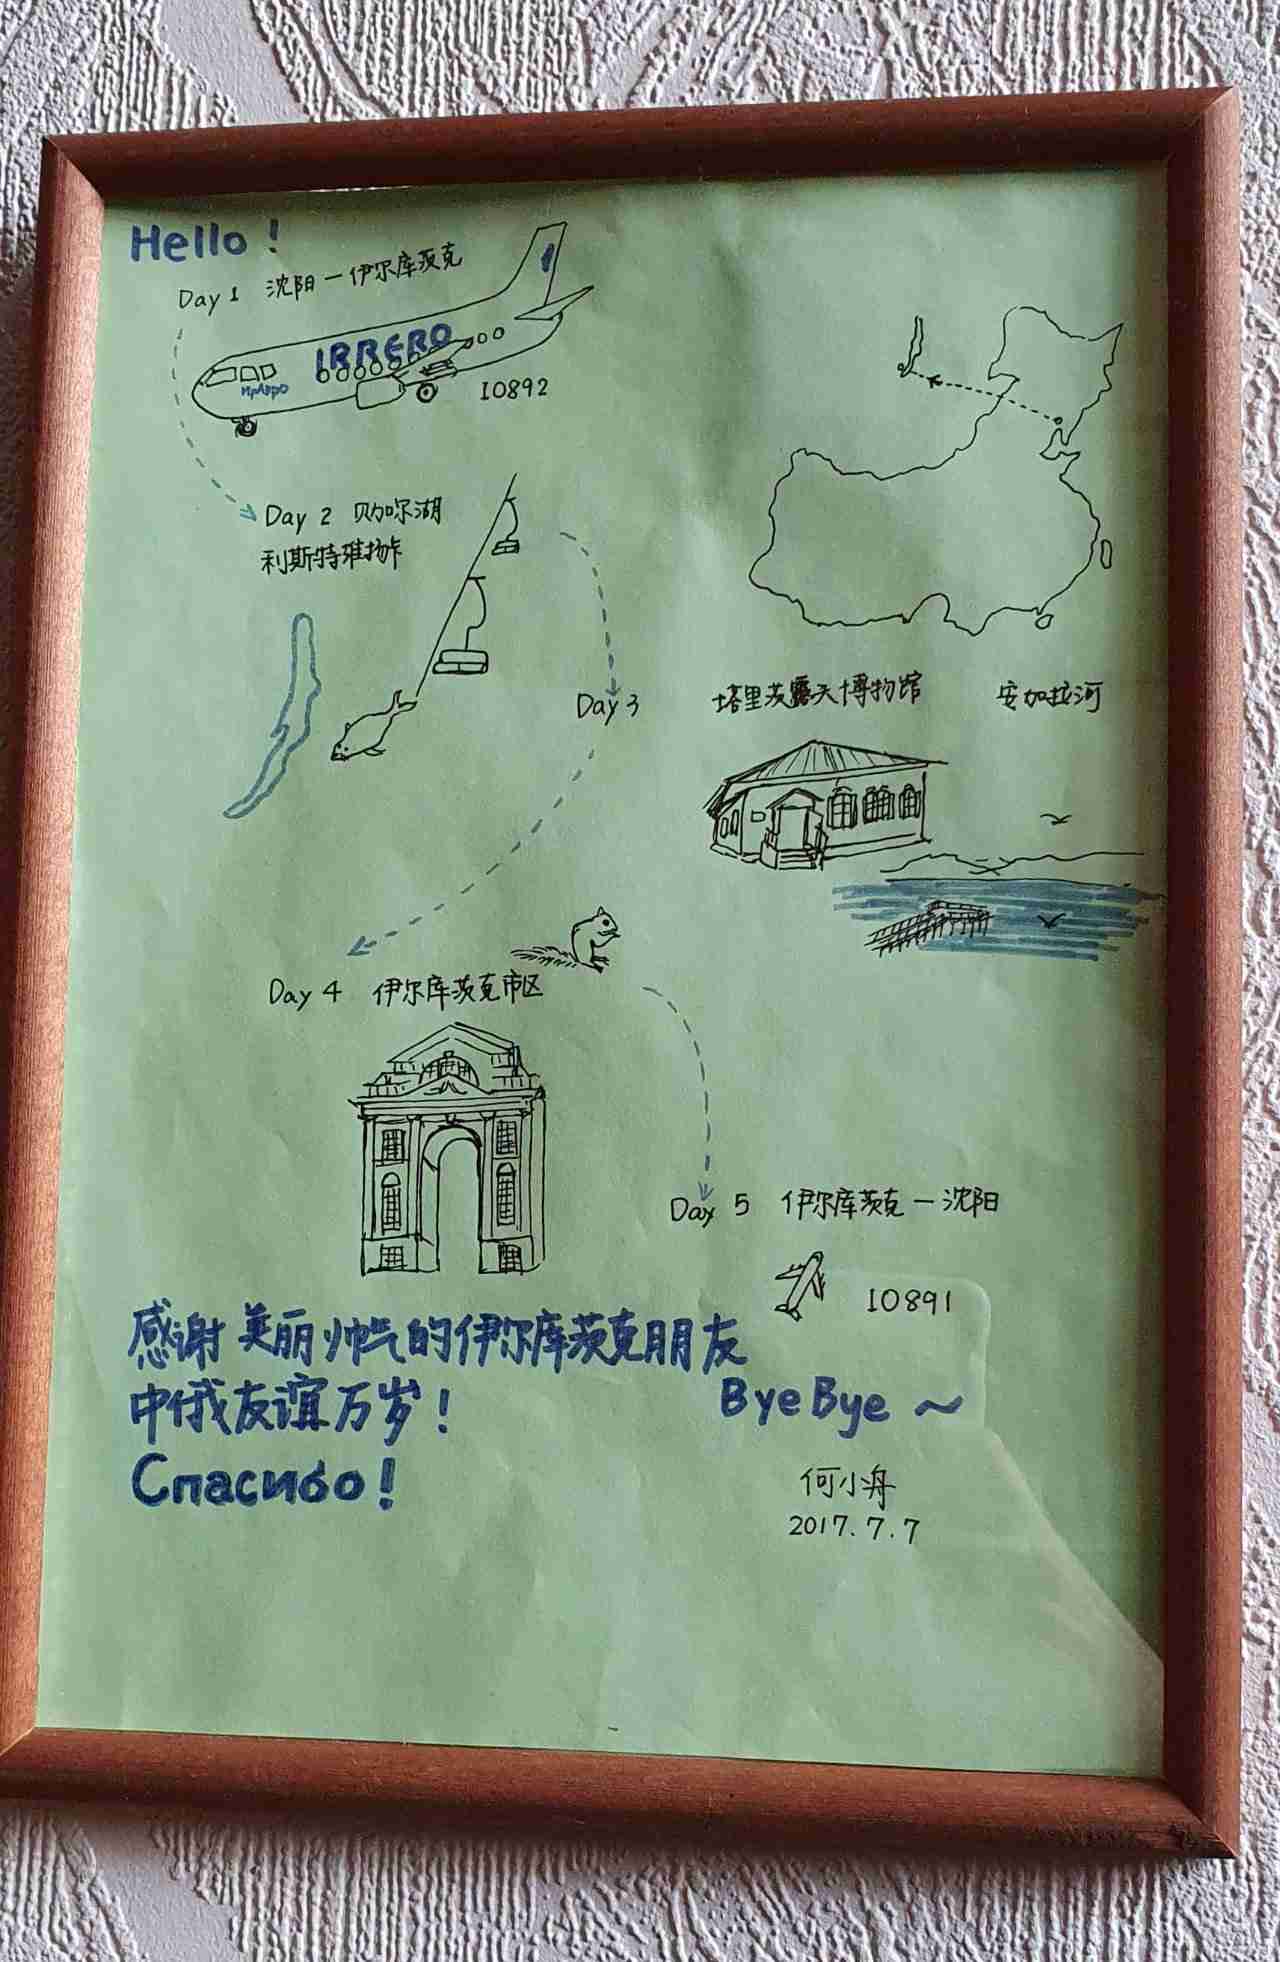 Hello!
Day 1 沈阳—伊尔库茨克
IRRERO
IO892
Day 2 贝加尔湖
利斯特维扬卡
Day 3 塔里茨露天博物馆 安加拉河
Day 4 伊尔库茨克市区
Day 5 伊尔库茨克—沈阳
IO891
感谢美丽帅气的伊尔库茨克朋友
中俄友谊万岁!
ByeBye ~
Спасибо!
何小舟
2017.7.7